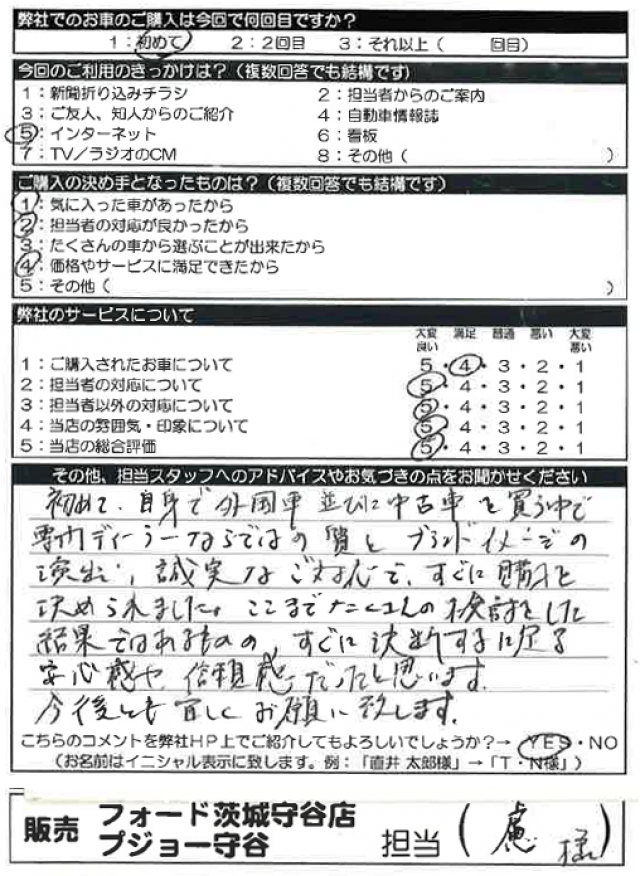 弊社でのお車のご購入は今回で何回目ですか?
1:初めて 2:2回目 3:それ以上( 回目)
今回のご利用のきっかけは?(複数回答でも結構です)
1:新聞折り込みチラシ 2:担当者からのご案内
3:ご友人、知人からのご紹介 4:自動車情報誌
5:インターネット 6:看板
7:TV/ラジオのCM 8:その他( )
ご購入の決め手となったものは?(複数回答でも結構です)
1:気に入った車があったから
2:担当者の対応が良かったから
3:たくさんの車から選ぶことが出来たから
4:価格やサービスに満足できたから
5:その他( )
弊社のサービスについて
大変良い 満足 普通 悪い 大変悪い
1:ご購入されたお車について 5・4・3・2・1
2:担当者の対応について 5・4・3・2・1
3:担当者以外の対応について 5・4・3・2・1
4:当店の雰囲気・印象について 5・4・3・2・1
5:当店の総合評価 5・4・3・2・1
その他、担当スタッフへのアドバイスやお気づきの点をお聞かせください
初めて、自身で外国車並びに中古車を買う中で
専門ディーラーならではの質とブランドイメージの
演出、誠実なご対応で、すぐに購入を
決められました。ここまでたくさんの検討をした
結果ではあるものの、すぐに決断するに足る
安心感や、信頼感だったと思います。
今後とも宜しくお願い致します。
こちらのコメントを弊社HP上でご紹介してもよろしいでしょうか?→ YES・NO
(お名前はイニシャル表示に致します。例:「直井 太郎様」→「T・N様」)
販売 フォード茨城守谷店
プジョー守谷 担当( 様)